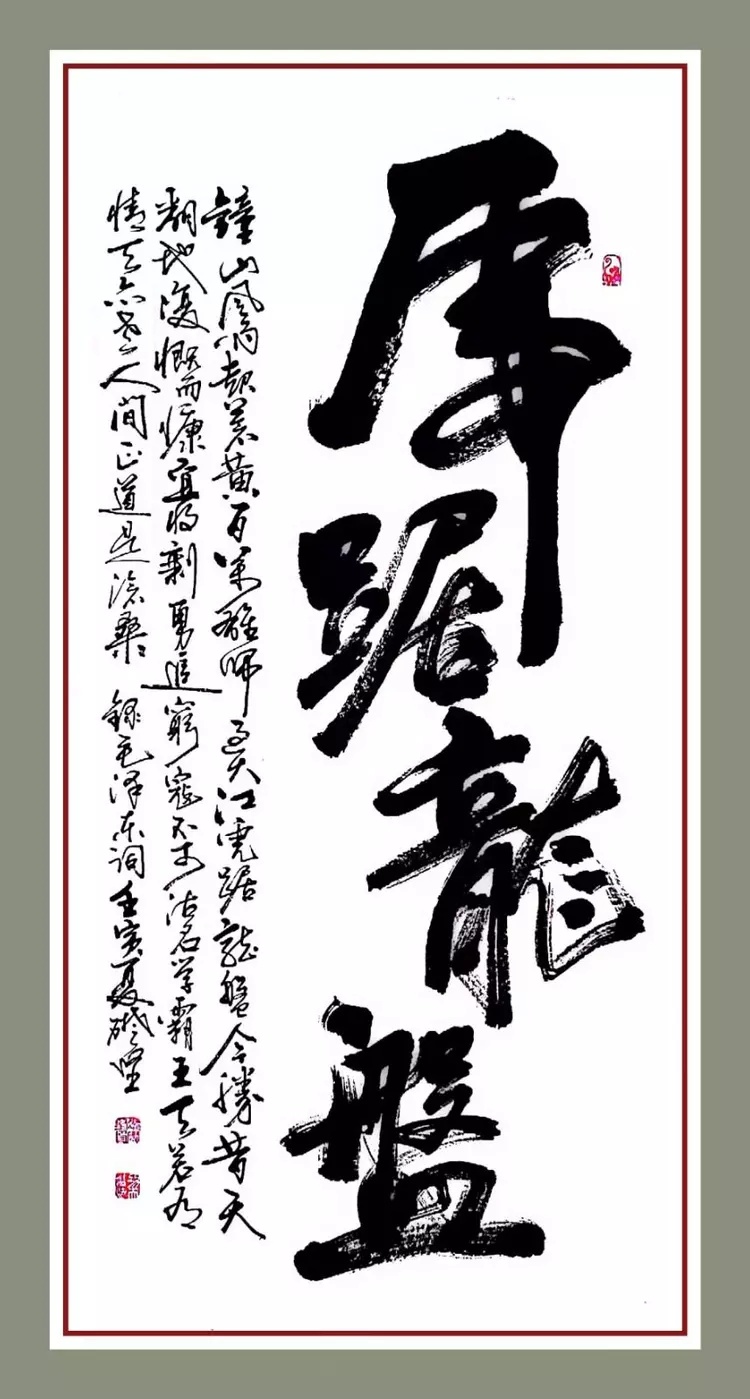 虎踞龍盤
鐘山風雨起蒼黄百萬雄師過大江虎踞龍盤今勝昔天
翻地覆慨而慷宜将剩勇追窮寇不可沽名学霸王天若有
情天亦老人間正道是滄桑 錄毛泽东词 壬寅夏